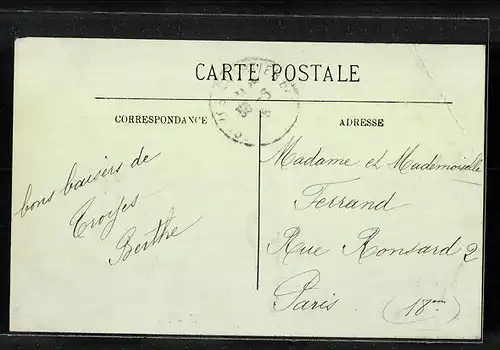 CARTE POSTALE
CORRESPONDANCE
ADRESSE
bons baisers de
Troyes
Berthe
Madame et Mademoiselle
Ferrand
Rue Ronsard 2
Paris (18eme)